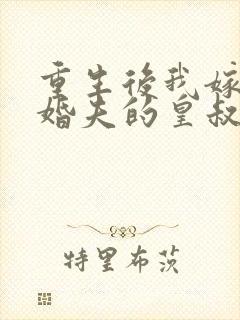 重生後我嫁
婚夫的皇叔
特里布茨